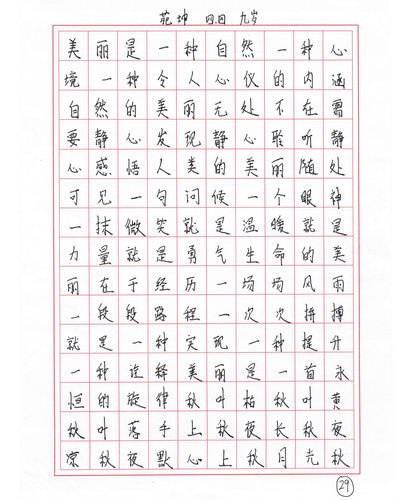 苑坤 九岁
美丽是一种自然一种心
境一种令人心仪的内涵
自然的美丽无处不在需
要静心发现静心聆听静
心感悟人类的美丽随处
可见一句问候一个眼神
一抹微笑就是温暖就是
力量就是勇气生命的美
丽在于经历一场场风雨
一段段路程一次次拼搏
就是一种实现一种提升
一种诠释美丽是一首永
恒的旋律秋叶枯秋叶黄
秋叶落手上秋夜长秋夜
凉秋夜默心上秋月光秋
29